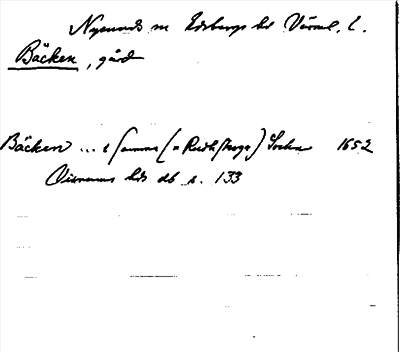 Nysunds sn Edsbergs hd Värml. l.
Bäcken, gård
Bäcken ... i samma (= Rudhskoga) Sochn 1652
Visnums hds db s. 133